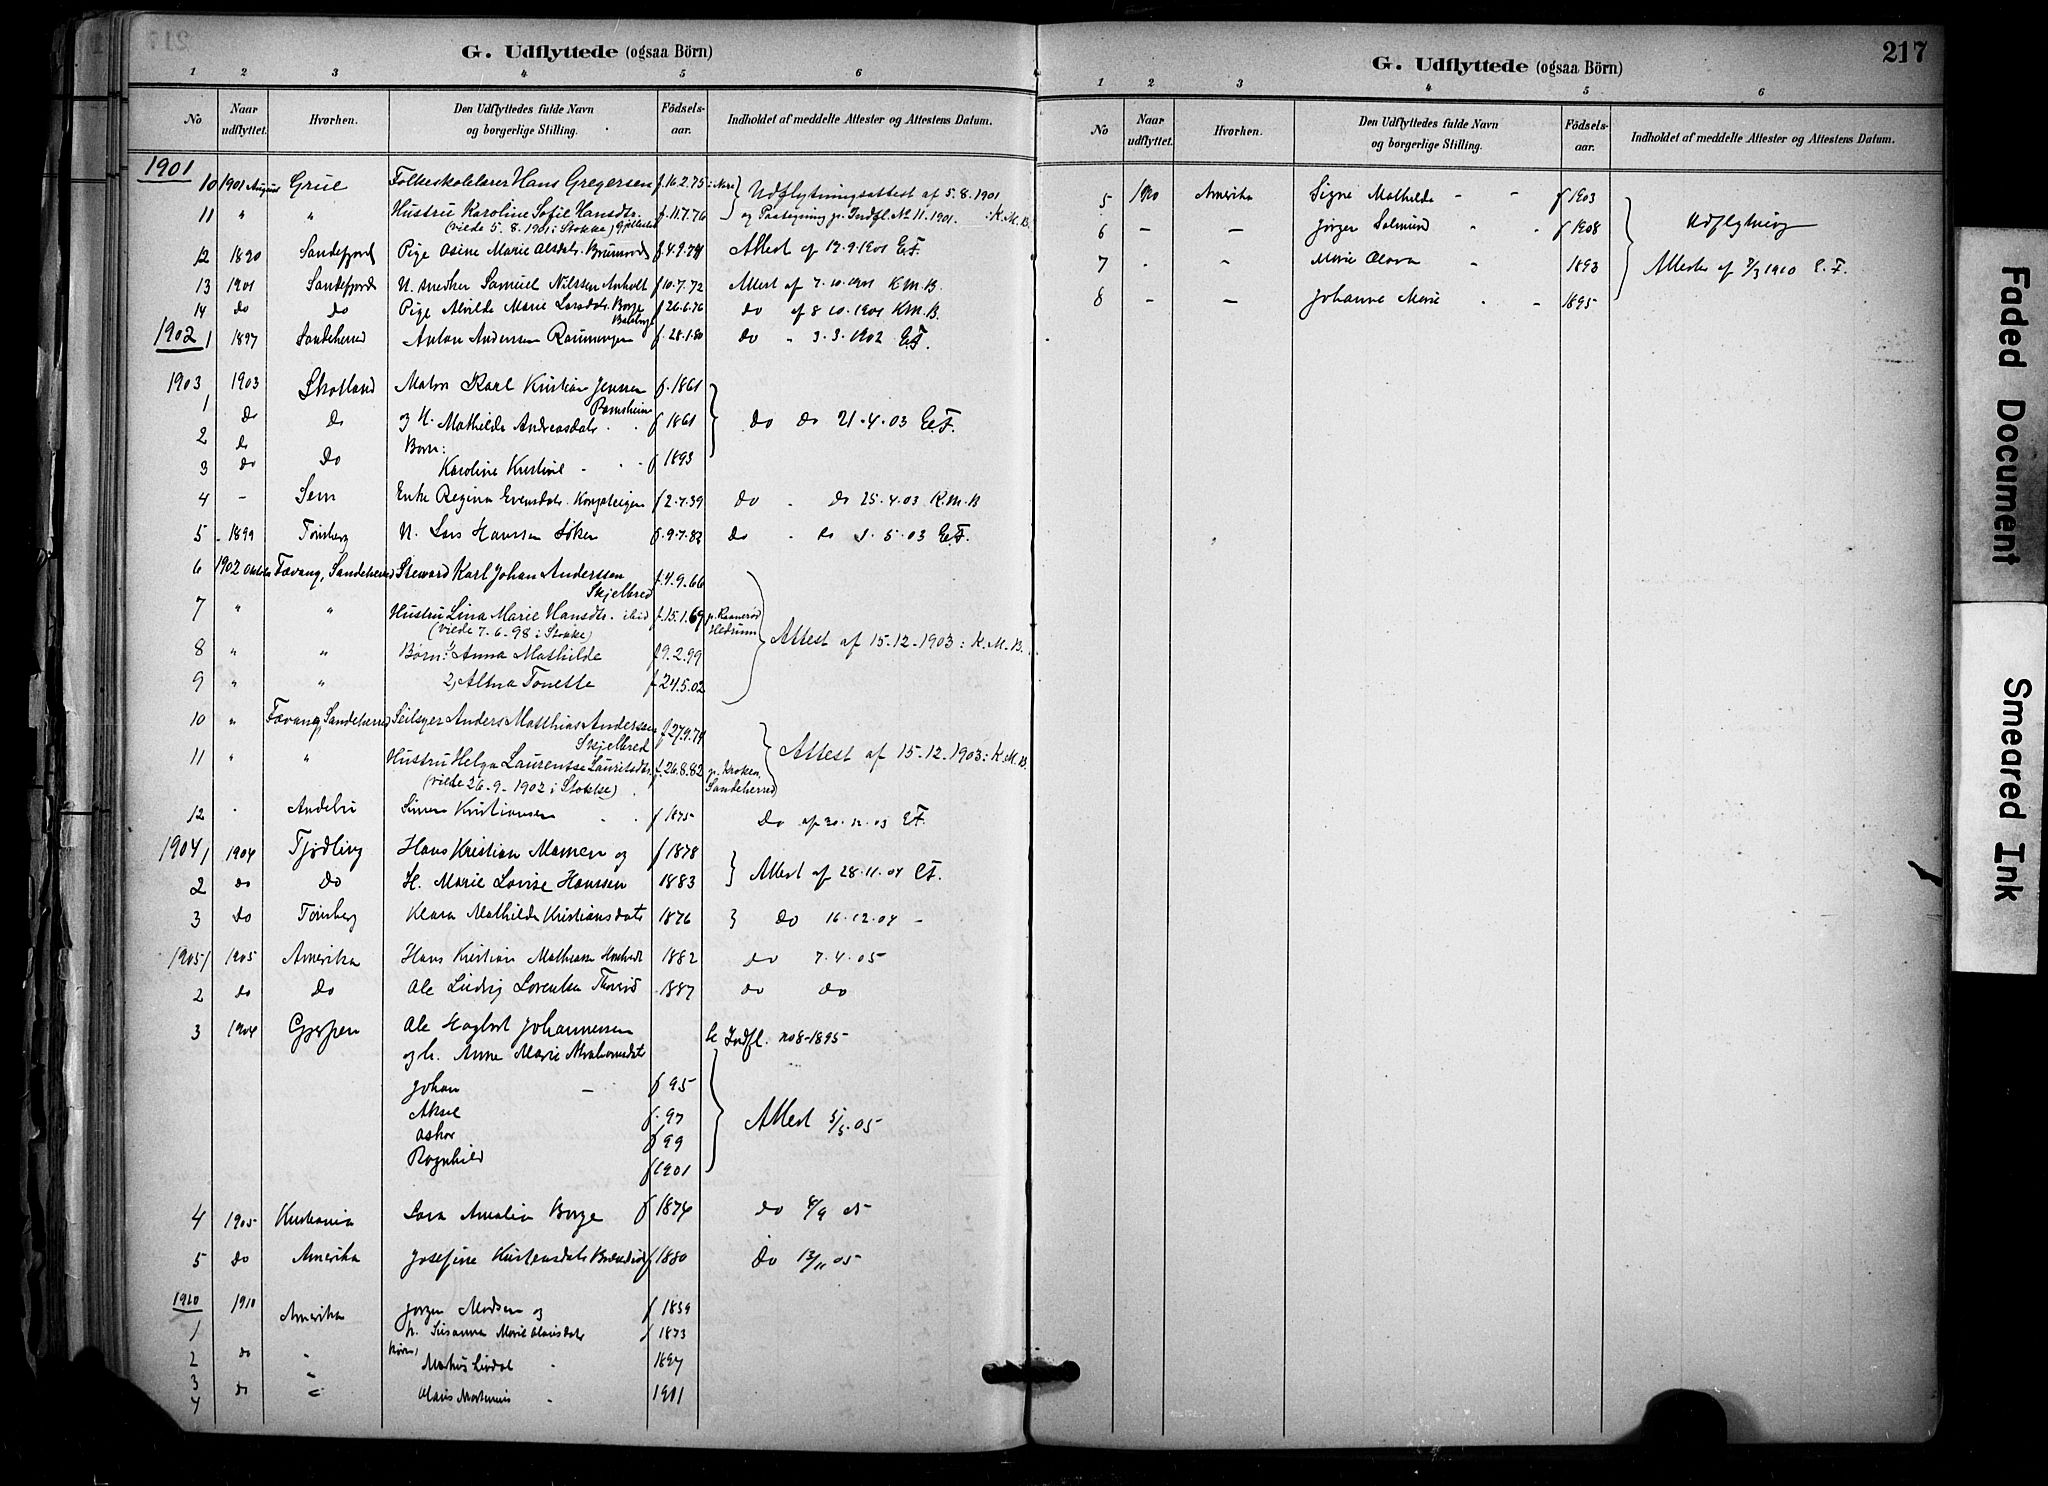 G. Udflyttede (ogsaa Börn)
1 2 3 4 5 6
No Naar udflyttet. Hvorhen. Den Udflyttedes fulde Navn og borgerlige Stilling. Födsels-aar. Indholdet af meddelte Attester og Attestens Datum.
1901
10 1901 August Grue Folkeskolelærer Hans Gregersen f. 16.2.75 Udflytningsattest af 5.8.1901
11 " " Hustru Karoline Sofie Hansdtr. f. 11.7.76 og Paategning p. Indfl. No 11.1901. : K.M.B.
(viede 5.8.1901 i Stokke)
12 1890 Sandefjord Pige Osine Marie Olsdtr. f. 4.9.74 Attest af 17.9.1901 E.F.
13 1901 Sandefjord U. smedker Samuel Nilssen Anholt f. 10.7.72 Attest af 7.10.1901 K.M.B.
14 do do Pige Alvilde Marie Larsdatr. Borge f. 26.6.76 do af 8.10.1901 K.M.B.
1902
1 1897 Sandeherred Anton Andersen f. 28.1.80 do " 3.3.1902 E.F.
1903
1 1903 Skotland Matr. Karl Kristian Jensen f. 1861
Ramsheim
2 do do og H. Mathilde Andreasdatr. " " f 1861 do do 21.4.03 E.F.
do Børn:
3 do do Karoline Kristine " " f 1893
4 - Sem Enke Regina Evensdatr. f 2.7.39 do " do 25.4.03 K.M.B
5 1899 Tønsberg U. Lars Hanssen f. 9.7.82 do " do 3.5.03 E.F.
6 1902 Oktbr Fævang, Sandeherred Steward Karl Johan Anderssen f. 4.9.66
Skjelbred
7 " " Hustru Lina Marie Hansdtr. ibid f. 15.1.69 p. Raanerød Hedrum
(viede 7.6.98 i Stokke)
Attest af 15.12.1903: K.M.B.
8 " " Børn: 1, Anna Mathilde f. 9.2.99
9 " " 2, Alma Tonette f. 24.5.02
10 " Fævang, Sandeherred Seilsyer Anders Matthias Andersen f. 27.9.74
Skjelbred
Attest af 15.12.1903: K.M.B.
11 " " Hustru Helga Laurentse Lauritsdtr. f. 26.8.82 p. Kroken, Sandeherred
(viede 26.9.1902 i Stokke)
12 " Andebu Simen Kristiansen " " f 1875 do af 30.12.03 E.F.
1904
1 1904 Tjødling Hans Kristian Mamen og f 1878
2 do do H. Marie Lovise Hanssen 1883 Attest af 28.11.04 E.F.
3 do Tønsberg Klara Mathilde Kristiansdatr 1876 do 16.12.04 -
1905
1 1905 Amerika Hans Kristian 1882 do 7.4.05
2 do do Ole Ludvig Lorentsen 1887 do do
3 1904 Gjerpen Ole Hagbart Johannessen se Indfl. no 8-1895
og h. Anne Marie Abrahamsdatr
Johan - f 95
Aksel f. 97
Oskar f 99
Ragnhild f 1901
Attest 5/5.05
4 1905 Kristiania Lara Amalia Borge f 1874 do 8/9 05
5 do Amerika Josefine Kristensdatr f 1880 do 13/11 05
1910
1 1910 Amerika Jørgen Madsen og f 1839
h. Susanna Marie Olausdatr f 1873
2 do " Børn, Markus Lindal " 1897
3 "
4 do " Olaus Martinius " 1901
217
G. Udflyttede (ogsaa Börn)
1 2 3 4 5 6
No Naar udflyttet. Hvorhen. Den Udflyttedes fulde Navn og borgerlige Stilling. Födsels-aar. Indholdet af meddelte Attester og Attestens Datum.
5 1910 Amerika Signe Mathilde - - f 1903
6 - - Jørgen Salmund " " f 1908 Udflytning
7 " " Marie Olava " 1893 Attester af 9/3 1910 E.F.
8 - - Johanne Marie " - 1895
Faded Document
Smeared Ink